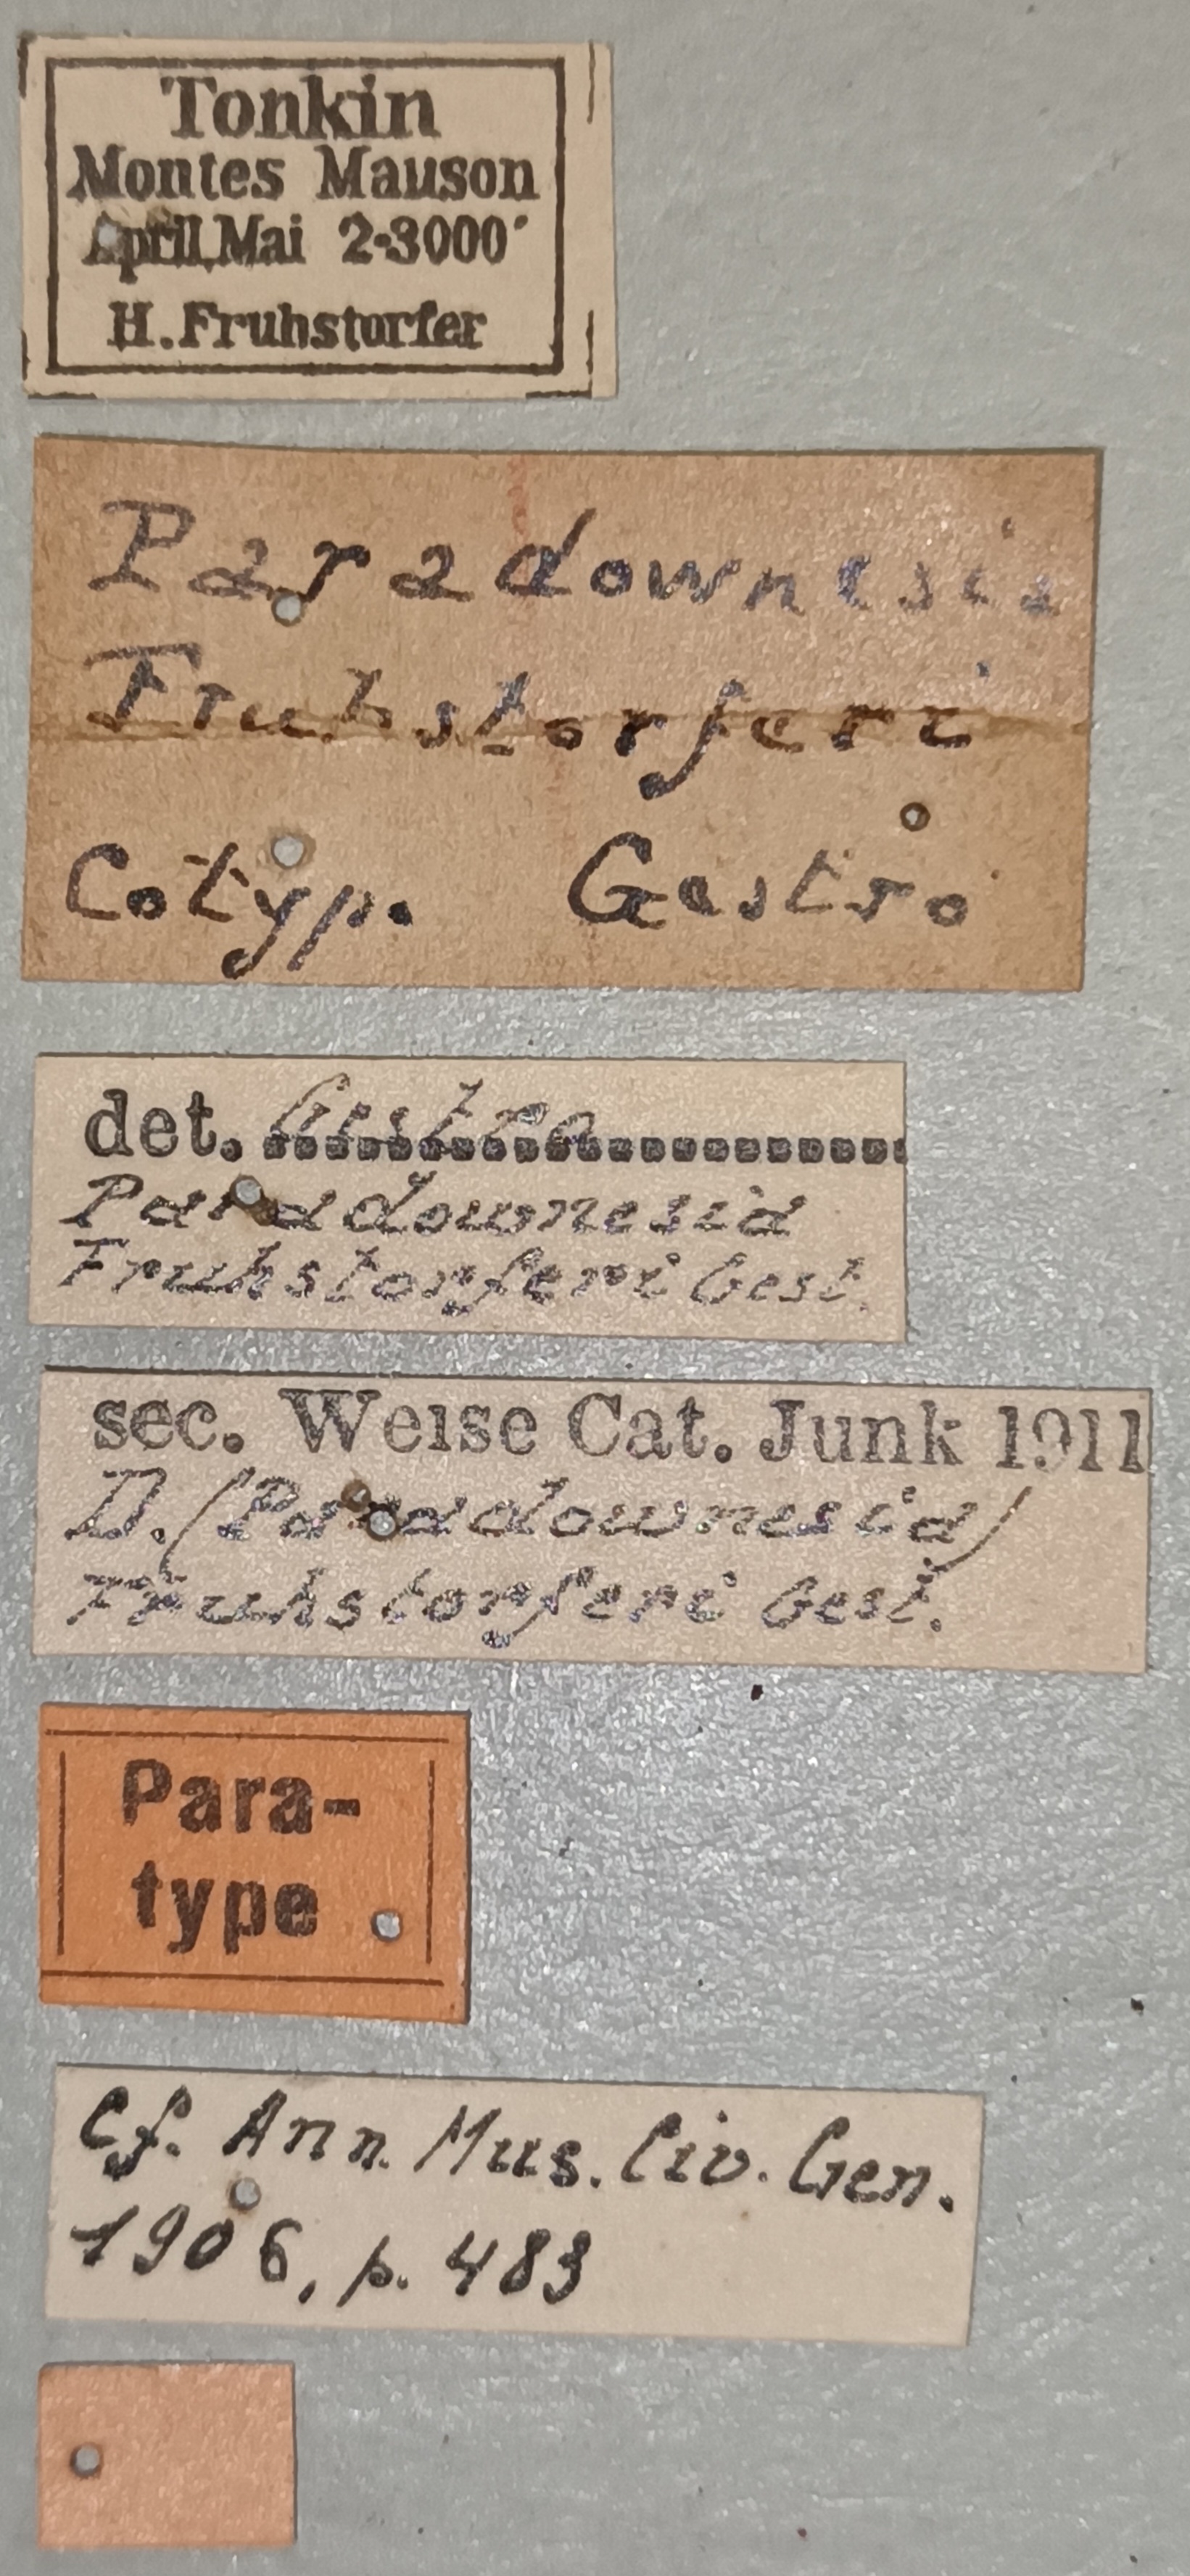 Tonkin
Montes Mauson
April,Mai 2-3000'
H.Fruhstorfer
Paradownesia
Fruhstorferi
Cotyp. Gestro
det. Gestro
Paradownesia
Fruhstorferi Gest.
sec. Weise Cat. Junk 1911
D.(Paradownesia)
Fruhstorferi Gest.
Para-
type
Cf. Ann. Mus. Civ. Gen.
1906, p. 483